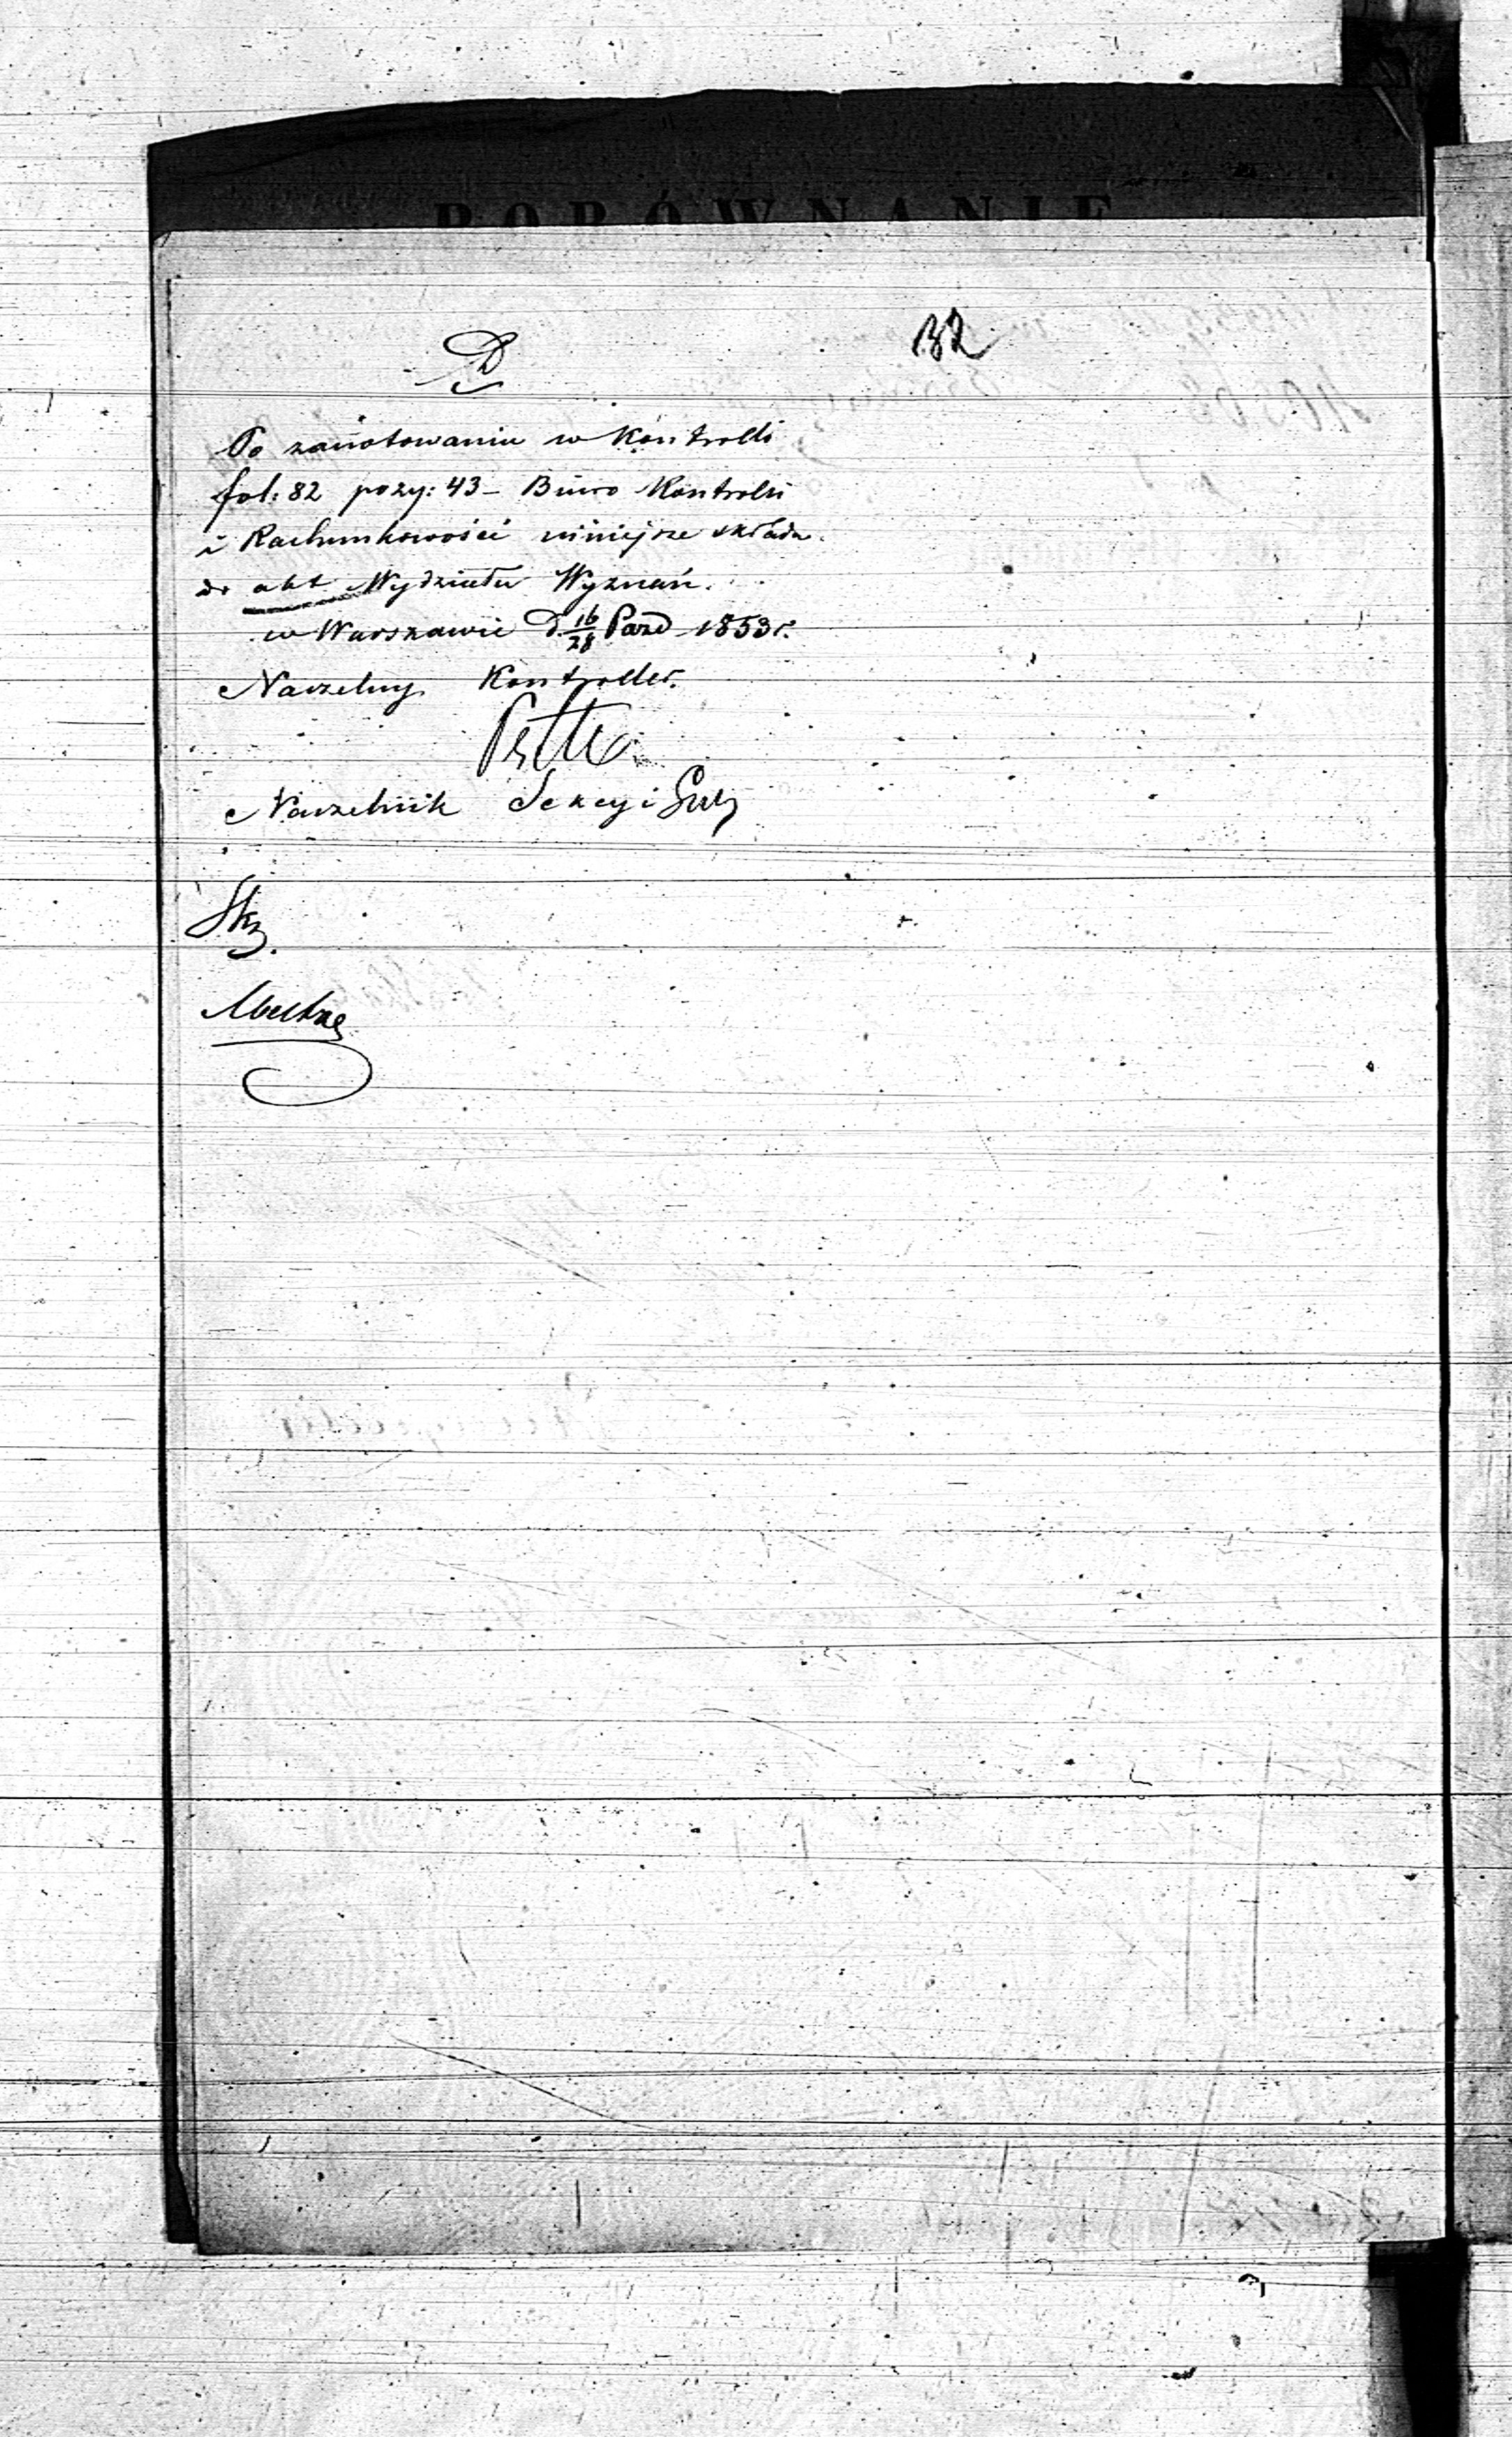 PORÓWNANIE
132
D
Po zanotowaniu w Kontrolli
fol: 82 pozy: 43 – Biuro Kontroli
i Rachunkowości niniejsze składa
do akt Wydziału Wyznań.
w Warszawie D. 16/28 Paźd 1853 r.
Naczelny Kontroller.
Naczelnik Sekcyi